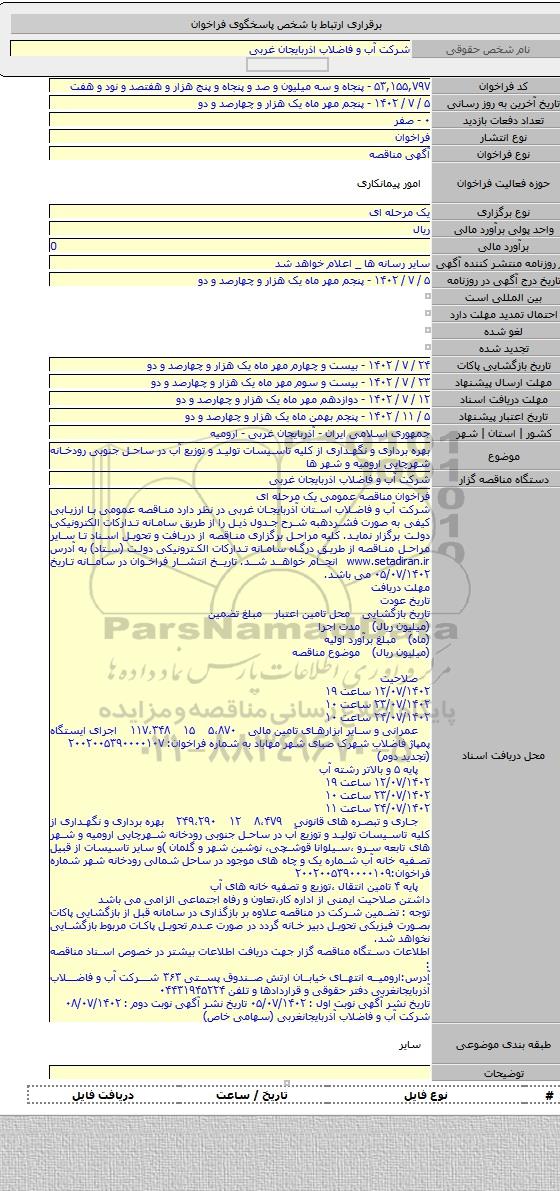 برقراری ارتباط با شخص پاسخگوی فراخوان
نام شخص حقوقی شرکت آب و فاضلاب اذربایجان غربی
کد فراخوان ۵۳,۱۵۵,۷۹۷ - پنجاه و سه میلیون و صد و پنجاه و پنج هزار و هفتصد و نود و هفت
تاریخ آخرین به روز رسانی ۵ / ۷ / ۱۴۰۲ - پنجم مهر ماه یک هزار و چهارصد و دو
تعداد دفعات بازدید ۰ - صفر
نوع انتشار فراخوان
نوع فراخوان آگهی مناقصه
حوزه فعالیت فراخوان امور پیمانکاری
نوع برگزاری یک مرحله ای
واحد پولی برآورد مالی ریال
برآورد مالی 0
روزنامه منتشر کننده آگهی سایر رسانه ها _ اعلام خواهد شد
تاریخ درج آگهی در روزنامه ۵ / ۷ / ۱۴۰۲ - پنجم مهر ماه یک هزار و چهارصد و دو
بین المللی است
احتمال تمدید مهلت دارد
لغو شده
تجدید شده
تاریخ بازگشایی پاکات ۲۴ / ۷ / ۱۴۰۲ - بیست و چهارم مهر ماه یک هزار و چهارصد و دو
مهلت ارسال پیشنهاد ۲۳ / ۷ / ۱۴۰۲ - بیست و سوم مهر ماه یک هزار و چهارصد و دو
مهلت دریافت اسناد ۱۲ / ۷ / ۱۴۰۲ - دوازدهم مهر ماه یک هزار و چهارصد و دو
تاریخ اعتبار پیشنهاد ۵ / ۱۱ / ۱۴۰۲ - پنجم بهمن ماه یک هزار و چهارصد و دو
کشور | استان | شهر جمهوری اسلامی ایران - آذربایجان غربی - ارومیه
موضوع بهره برداری و نگهداری از کلیه تاسیسات تولید و توزیع آب در ساحل جنوبی رودخانه
شهرچایی ارومیه و شهر ها
دستگاه مناقصه گزار شرکت آب و فاضلاب اذربایجان غربی
فراخوان مناقصه عمومی یک مرحله ای
شرکت آب و فاضلاب استان آذربایجان غربی در نظر دارد مناقصه عمومی با ارزیابی
کیفی به صورت فشرده‎به شرح جدول ذیل را از طریق سامانه تدارکات الکترونیکی
دولت برگزار نماید. کلیه مراحل برگزاری مناقصه از دریافت و تحویل اسناد تا سایر
مراحل مناقصه از طریق درگاه سامانه تدارکات الکترونیکی دولت (ستاد) به آدرس
www.setadiran.ir انجام خواهد شد. تاریخ انتشار فراخوان در سامانه تاریخ
۰۵/۰۷/۱۴۰۲ می باشد.
مهلت دریافت
تاریخ عودت
تاریخ بازگشایی محل تامین اعتبار مبلغ تضمین
(میلیون ریال) مدت اجرا
(ماه) مبلغ برآورد اولیه
(میلیون ریال) موضوع مناقصه
صلاحیت
۱۲/۰۷/۱۴۰۲ ساعت ۱۹
۲۳/۰۷/۱۴۰۲ ساعت ۱۰
۲۴/۰۷/۱۴۰۲ ساعت ۱۰
عمرانی و سایر ابزارهای تامین مالی ۵,۸۷۰ ۱۵ ۱۱۷,۳۴۸ اجرای ایستگاه
پمپاژ فاضلاب شهرک صبای شهر مهاباد به شماره فراخوان: ۲۰۰۲۰۰۵۳۹۰۰۰۰۱۰۷
(تجدید دوم)
پایه ۵ و بالاتر رشته آب
۱۲/۰۷/۱۴۰۲ ساعت ۱۹
۲۳/۰۷/۱۴۰۲ ساعت ۱۰
۲۴/۰۷/۱۴۰۲ ساعت ۱۱
محل دریافت اسناد
جاری و تبصره های قانونی ۸,۴۷۹ ۱۲ ۲۴۹,۲۹۰ بهره برداری و نگهداری از
کلیه تاسیسات تولید و توزیع آب در ساحل جنوبی رودخانه شهرچایی ارومیه و شهر
های تابعه سرو ،سیلوانا قوشچی، نوشین شهر و گلمان )و سایر تاسیسات از قبیل
تصفیه خانه آب شماره یک و چاه های موجود در ساحل شمالی رودخانه شهر شماره
فراخوان:۲۰۰۲۰۰۵۳۹۰۰۰۰۱۰۹
پایه ۴ تامین انتقال ،توزیع و تصفیه خانه های آب
داشتن صلاحیت ایمنی از اداره کار،تعاون و رفاه اجتماعی الزامی می باشد
توجه : تضمین شرکت در مناقصه علاوه بر بارگذاری در سامانه قبل از بازگشایی پاکات
بصورت فیزیکی تحویل دبیر خانه گردد در صورت عدم تحویل پاکات مربوط بازگشایی
نخواهد شد.
اطلاعات دستگاه مناقصه گزار جهت دریافت اطلاعات بیشتر در خصوص اسناد مناقصه
:
آدرس:ارومیه انتهای خیابان ارتش صندوق پستی ۳۶۳ شرکت آب و فاضلاب
آذربایجانغربی دفتر حقوقی و قراردادها و تلفن ۰۴۴۳۱۹۴۵۲۲۴
تاریخ نشر آگهی نوبت اول : ۰۵/۰۷/۱۴۰۲ تاریخ نشر آگهی نوبت دوم : ۰۸/۰۷/۱۴۰۲
شرکت آب و فاضلاب آذربایجانغربی (سهامی خاص)
طبقه بندی موضوعی سایر
توضیحات
# نوع فایل تاریخ / ساعت دریافت فایل
ParsNamadData
مرکز فرآوری اطلاعات پارس نماد داده ها
پایگاه اطلاع رسانی مناقصه و مزایده